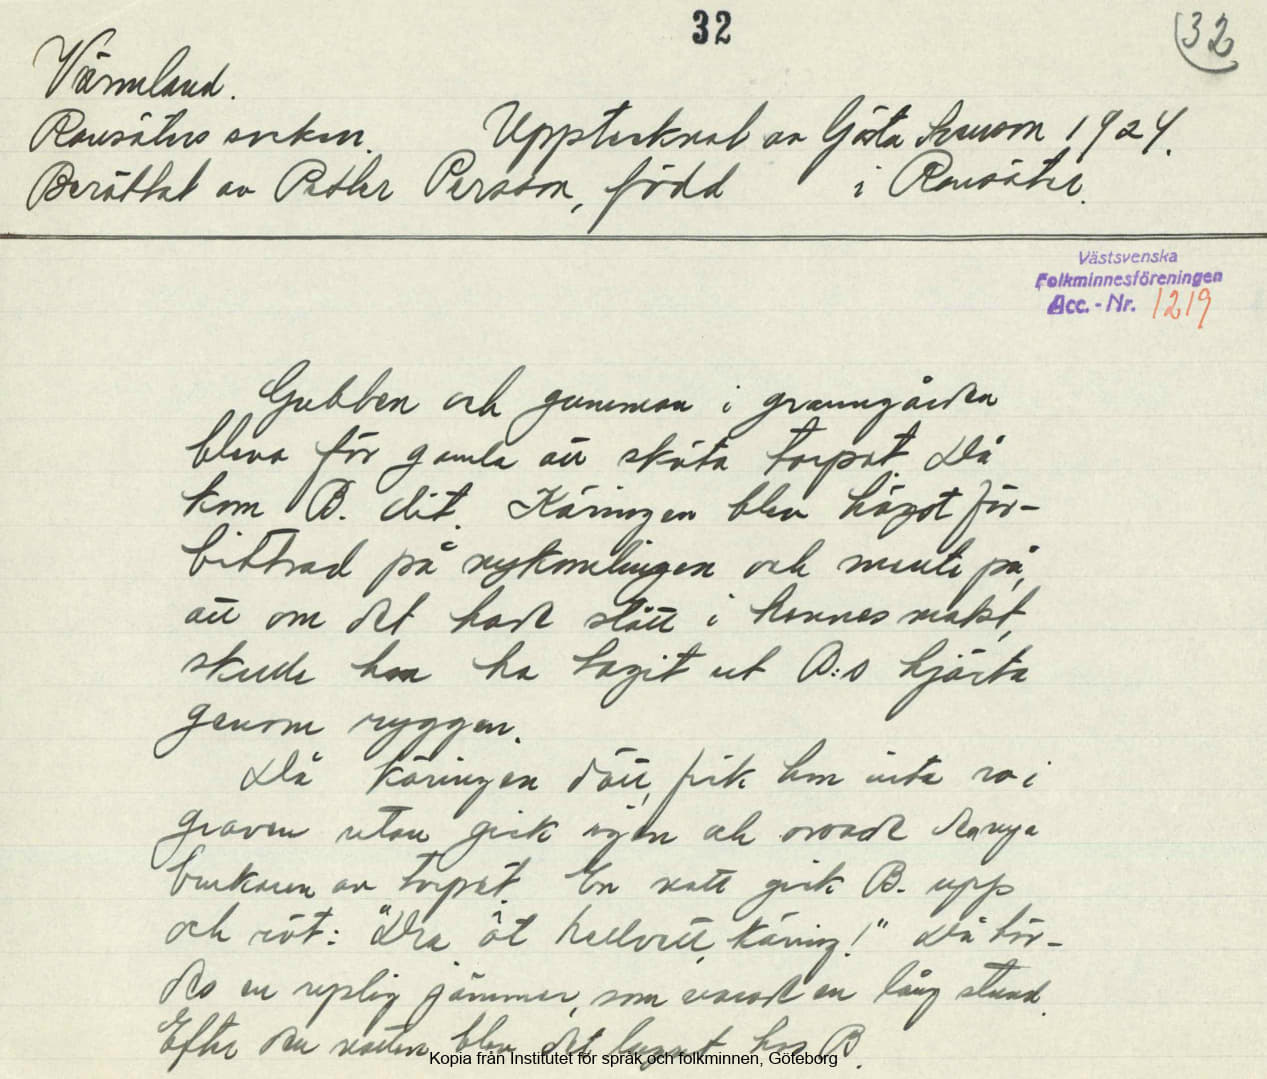 32
32
Värmland.
Ransäters socken. Upptecknat av Gösta Ivarson 1924.
Berättat av Petter Persson, född i Ransäter.
Västsvenska
Folkminnesföreningen
Acc. - Nr. 1219
Gubben och gumman i granngården
bleva för gamla att sköta torpet. Då
kom B. dit. Käringen blev något för-
bittrad på nykomlingen och mente på,
att om det hade stått i hennes makt,
skulle hon ha tagit ut B:s hjärta
genom ryggen.
Då käringen dött, fick hon inte ro i
graven utan gick igen och oroade den nya
brukaren av torpet. En natt gick B. upp
och röt: "Dra åt hellvett, käring!" Då hör-
des en ryslig jämmer, som varade en lång stund.
Efter den natten blev det lugnt hos B.
Kopia från Institutet för språk och folkminnen, Göteborg